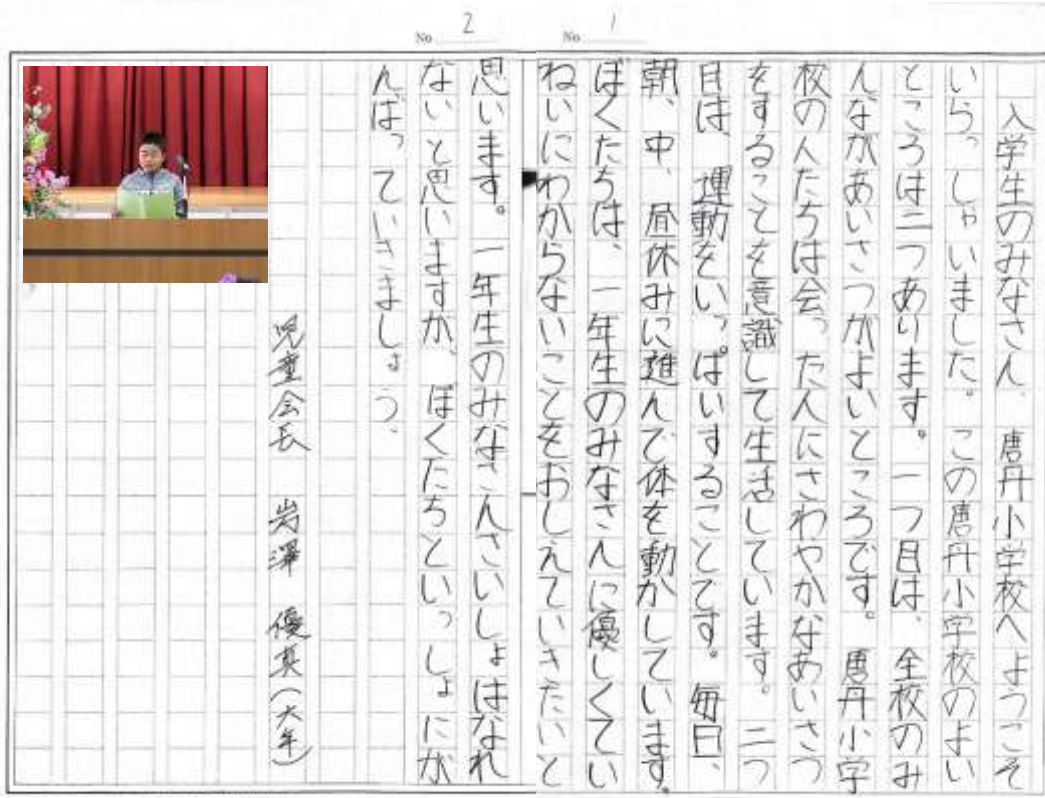 No. 1
入学生のみなさん、唐丹小学校へようこそ
いらっしゃいました。この唐丹小学校のよい
ところは二つあります。一つ目は、全校のみ
んながあいさつがよいところです。唐丹小学
校の人たちは会った人にさわやかなあいさつ
をすることを意識して生活しています。二つ
日は、運動をいっぱいすることです。毎日、
朝、中、昼休みに進んで体を動かしています。
ぼくたちは、一年生のみなさんに優しくてい
ねいにわからないことをおしえていきたいと
No. 2
思います。一年生のみなさんさいしょはなれ
ないと思いますが、ぼくたちといっしょにが
んばっていきましょう。
児童会長 岩澤 優真(六年)